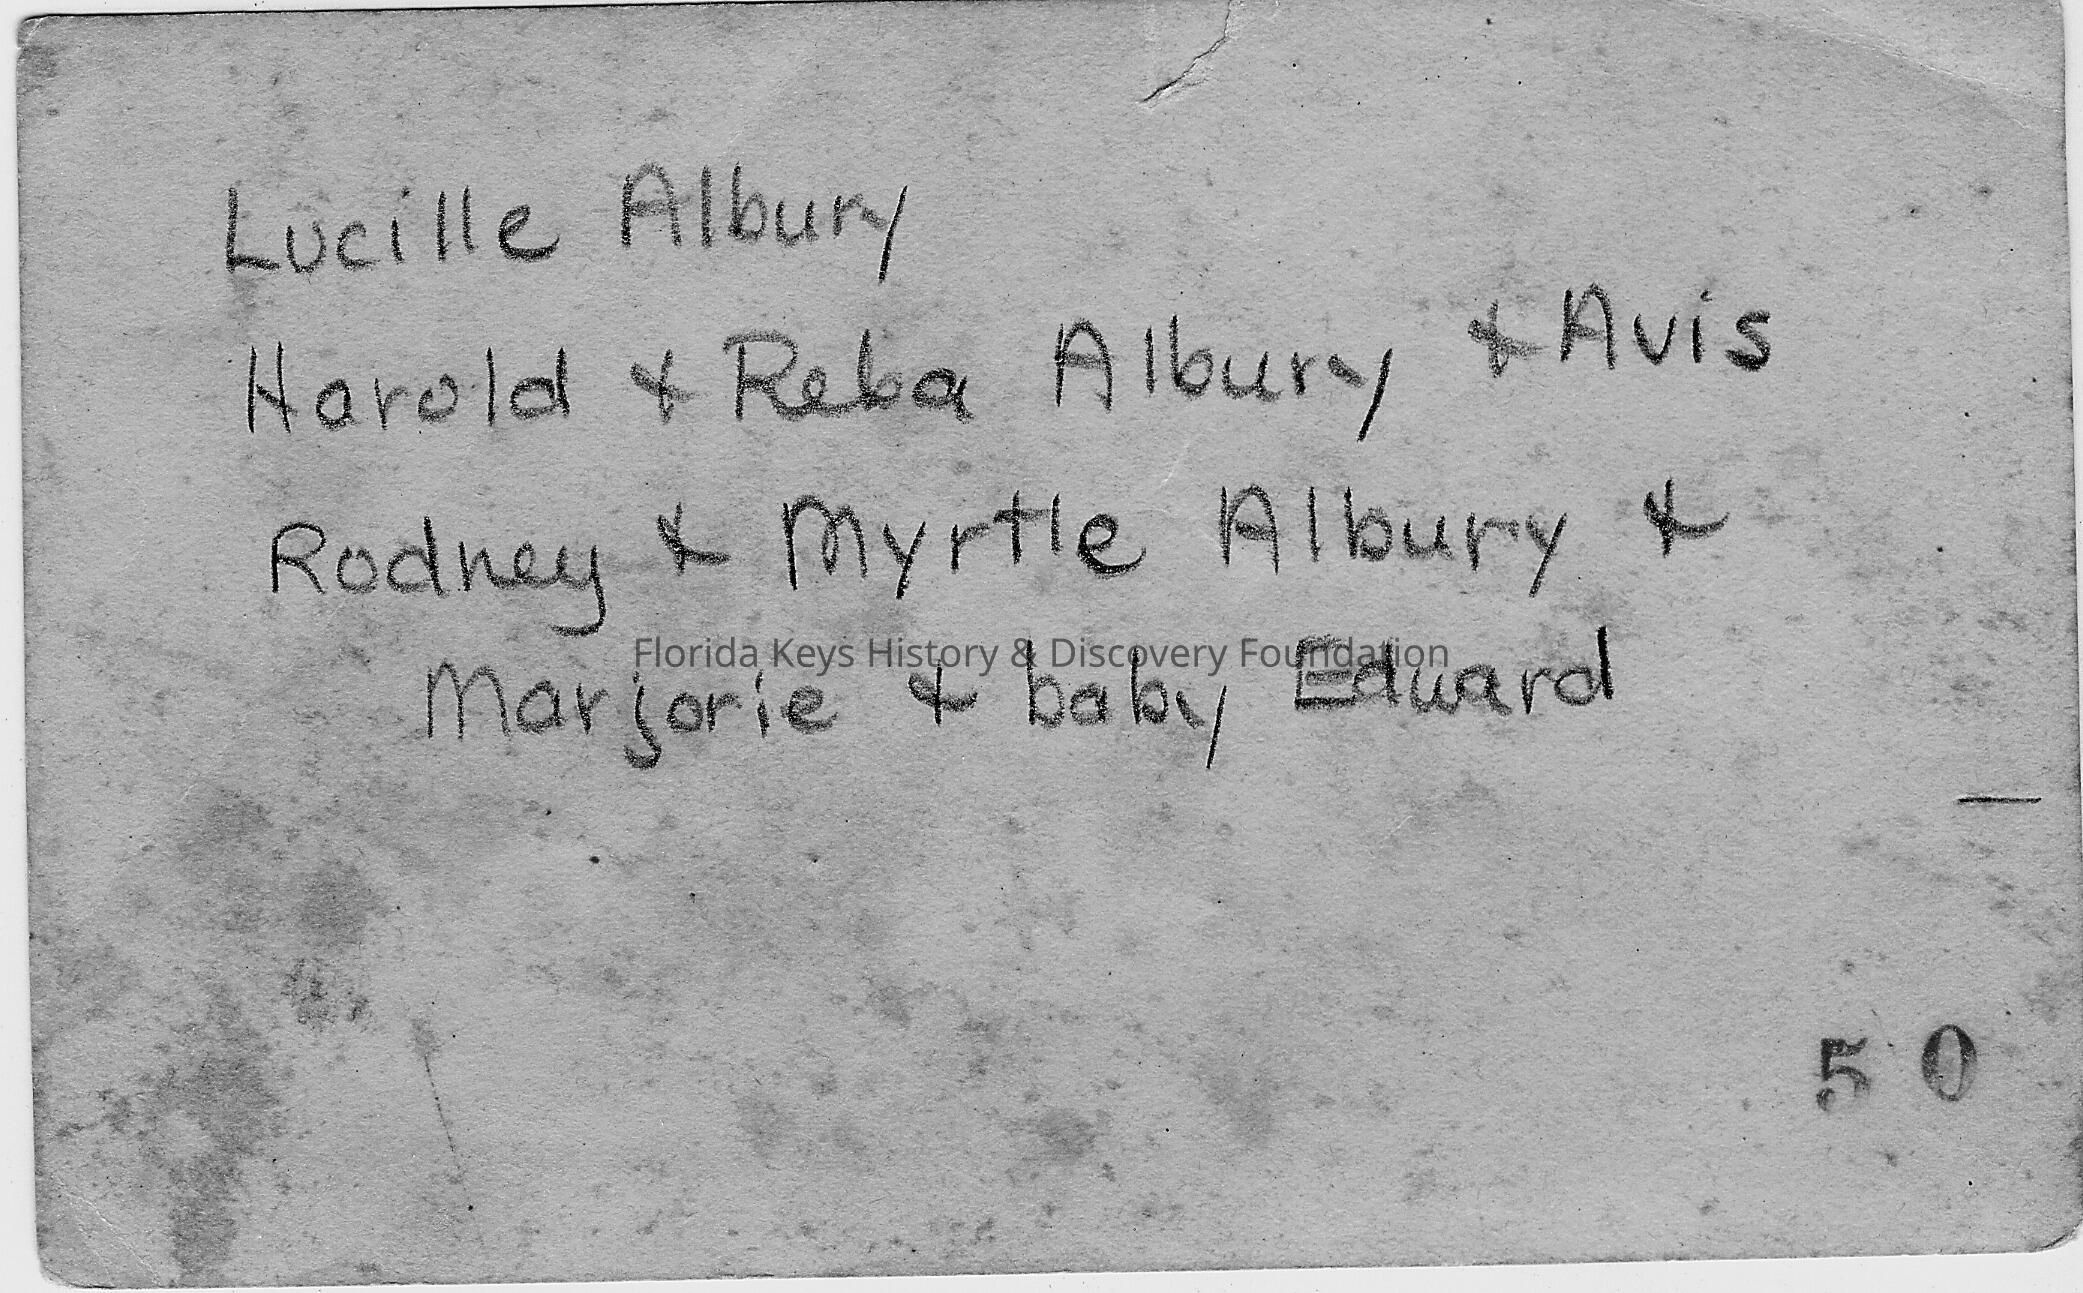 Lucille Albury
Harold & Reba Albury & Avis
Rodney & Myrtle Albury &
Florida Keys History & Discovery Foundation
Marjorie & baby Edward
50